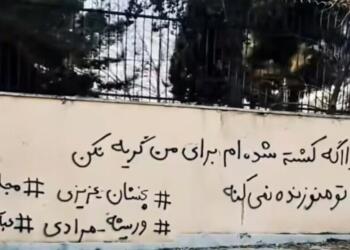 اگه کشته شده ام برای من گریه نکن
تو منو زنده نمی کنه
# پخشان عزیزی #
# وریشه_مرادی #